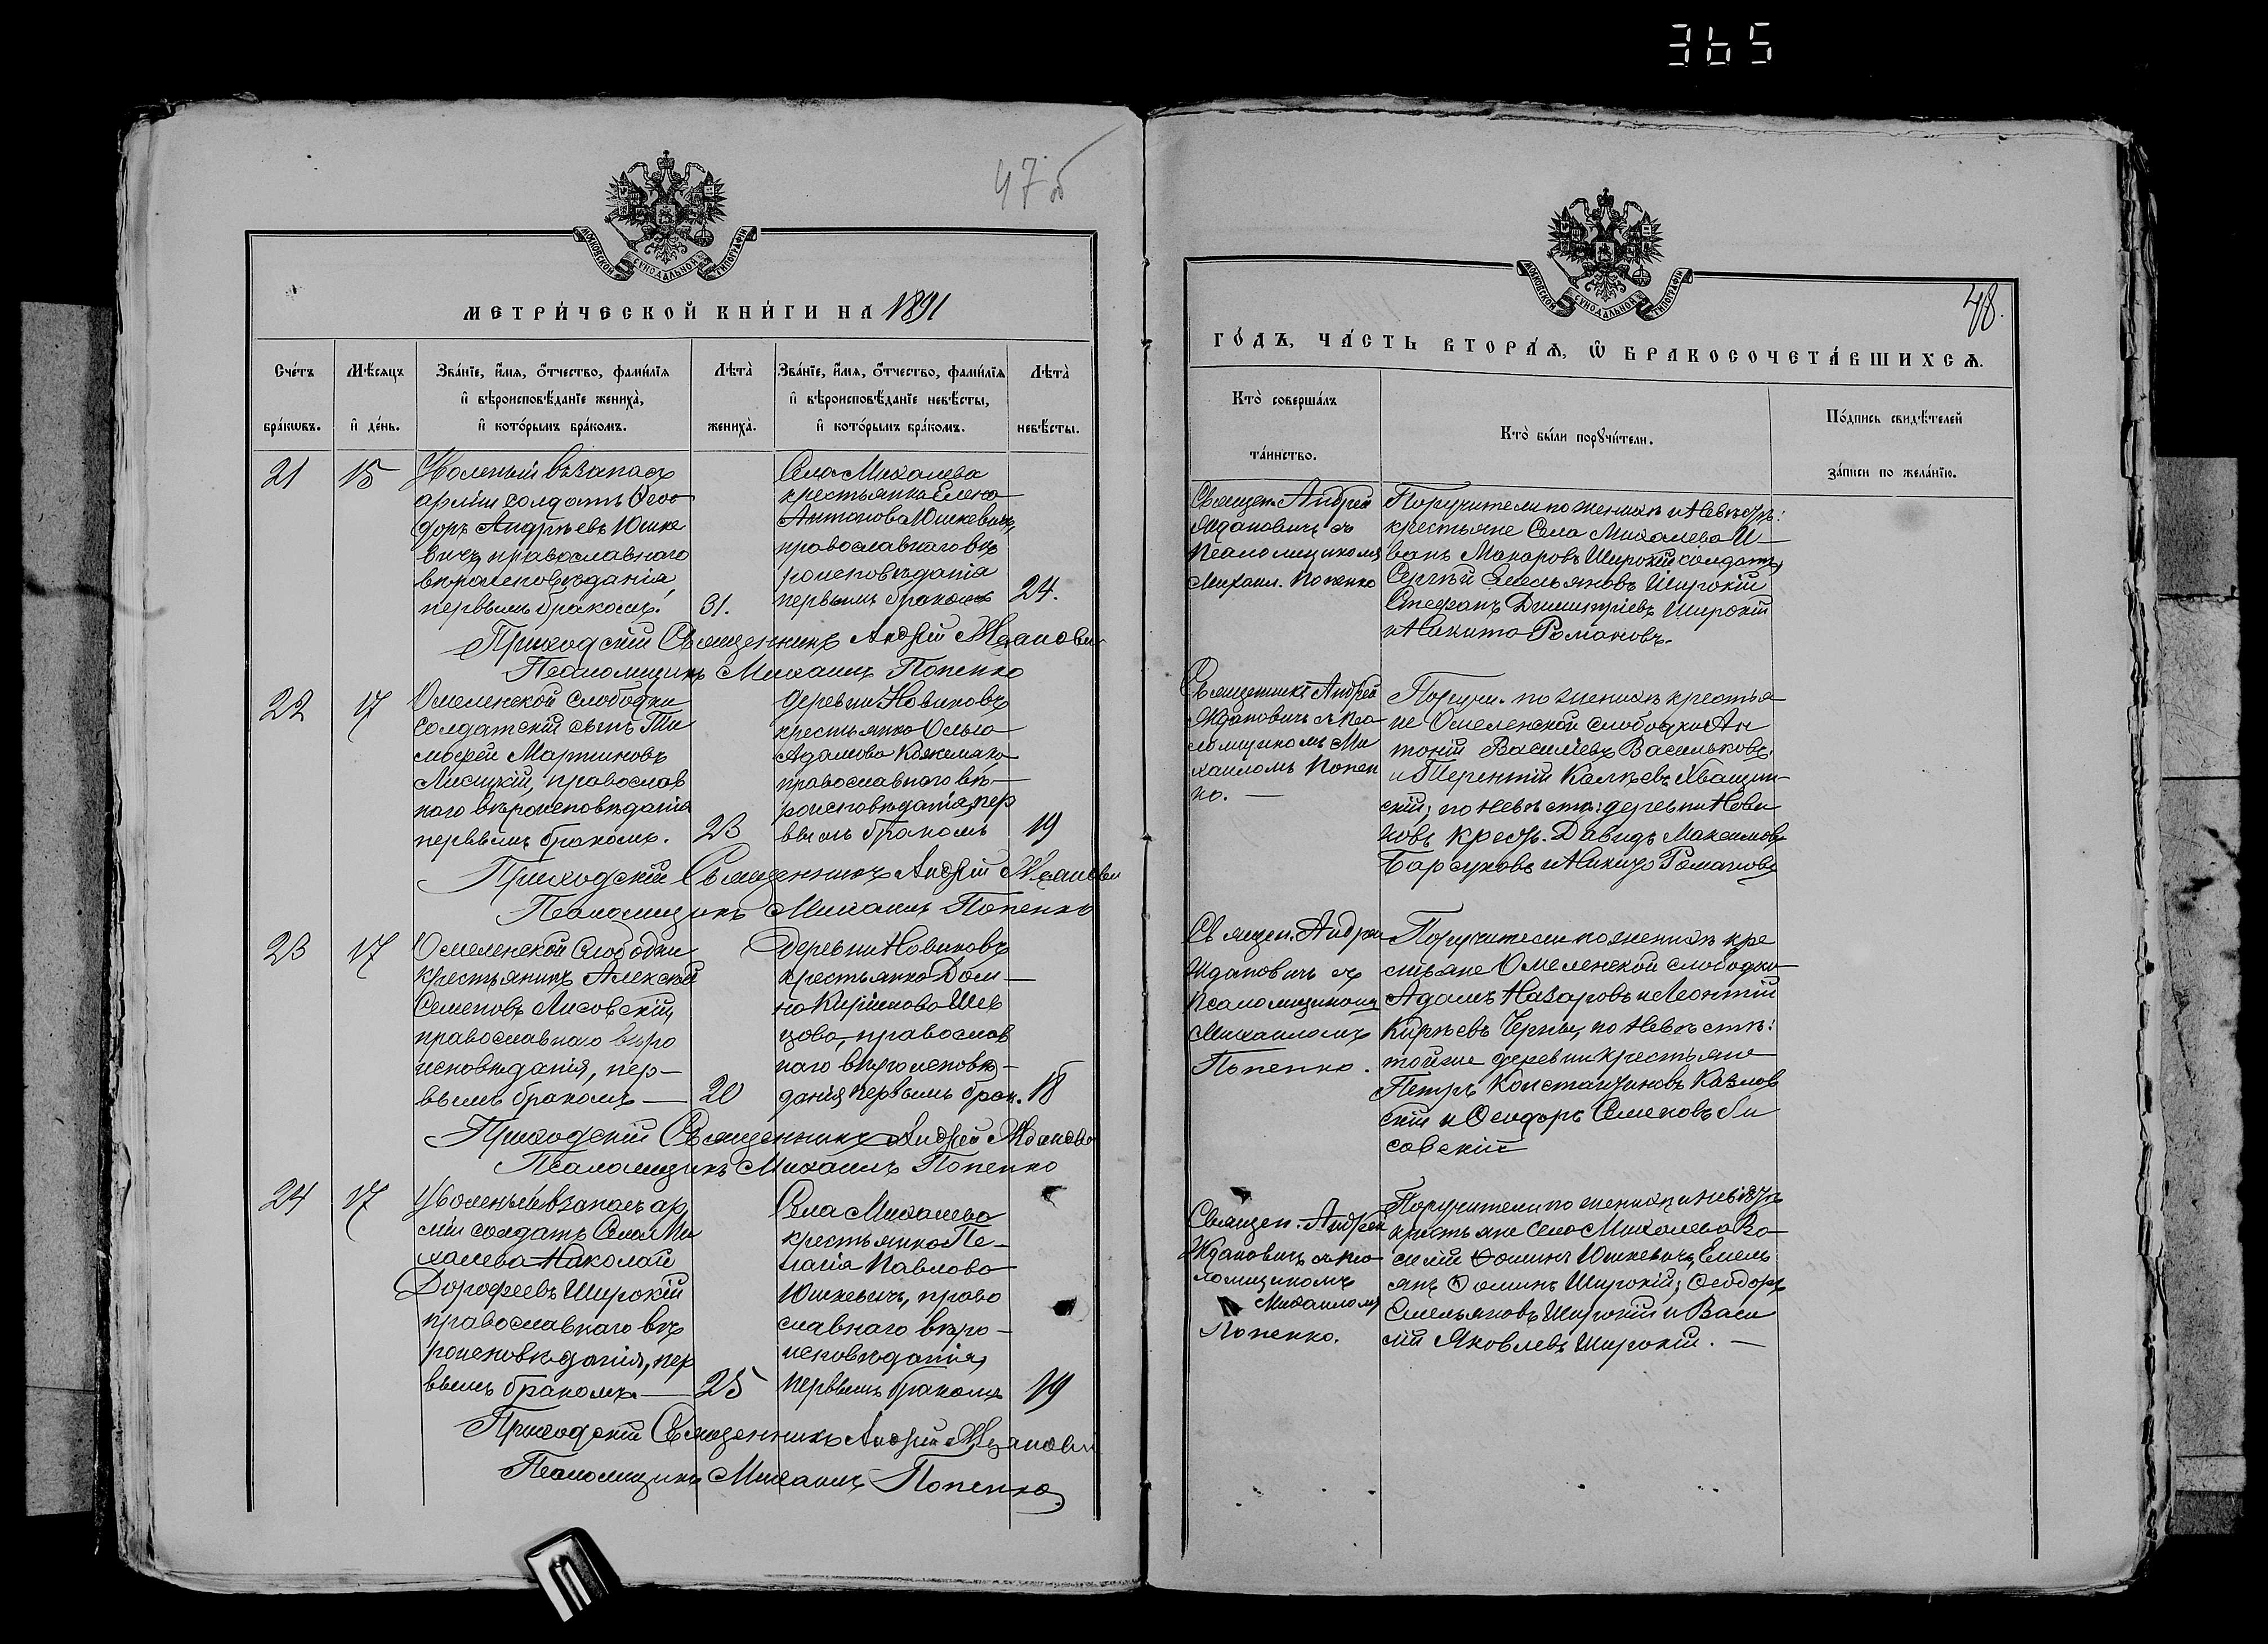 365
47об
МОСКОВСКОЙ СѴНОДАЛЬНОЙ ТИПОГРАФІИ
МЕТРИ́ЧЕСКОЙ КНИ́ГИ НА 1891
Сче́тъ бра́кѡвъ.
Мѣ́сяцъ и҆ де́нь.
Зва́нїе, и҆́мѧ, ѻ҆́тчество, фами́лїѧ
и҆ вѣроисповѣ́данїе жениха̀,
и҆ кото́рымъ бра́комъ.
Лѣта̀ жениха̀.
Зва́нїе, и҆́мѧ, ѻ҆́тчество, фами́лїѧ
и҆ вѣроисповѣ́данїе невѣ́сты,
и҆ кото́рымъ бра́комъ.
Лѣта̀ невѣ́сты.
21
15
Уволеный въ запасъ
арміи солдатъ Ѳео-
доръ Андреевъ Юшке
вичъ, православнаго
вѣроисповѣданія,
первымъ бракомъ.
31.
Села Михалева
крестьянка Елена
Антонова Юшкевичъ,
православнаго вѣ
роисповѣданія
первымъ бракомъ
24.
Приходскій Священникъ Андрей Ждановичъ
Псаломщикъ Михаилъ Попенко
22
17
Омеленской Слободки
солдатскій сынъ Ти
мофей Мартиновъ
Лисицкій, православ
наго вѣроисповѣданія
первымъ бракомъ.
23
Деревни Новиковъ
крестьянка Ольга
Адамова Кожемяко
православнаго вѣ-
роисповѣданія, пер
вымъ бракомъ
19
Приходскій Священникъ Андрей Ждановичъ
Псаломщикъ Михаилъ Попенко
23
17
Омеленской Слободки
крестьянинъ Алексей
Семеновъ Лисовскій,
православнаго вѣро
исповѣданія, пер-
вымъ бракомъ
20
Деревни Новиковъ
крестьянка Дом-
на Киріекова Шев
цова, православ
наго вѣроисповѣ-
данія, первымъ брак.
18
Приходскій Священникъ Андрей Ждановичъ
Псаломщикъ Михаилъ Попенко
24
17
Уволеный въ запасъ ар
міи солдатъ Села Ми
халева Николай
Дорофеевъ Широкій
православнаго вѣ
роисповѣданія, пер
вымъ бракомъ
25
Села Михалева
крестьянка Пе-
лагія Павлова
Юшкевичъ, право
славнаго вѣро-
исповѣданія,
первымъ бракомъ
19
Приходскій Священникъ Андрей Ждановичъ
Псаломщикъ Михаилъ Попенко
МОСКОВСКОЙ СѴНОДАЛЬНОЙ ТИПОГРАФІИ
48.
ГО́ДЪ, ЧА́СТЬ ВТОРА́Ѧ, Ѽ БРАКОСОЧЕТА́ВШИХСѦ.
Кто̀ соверша́лъ
та́инство.
Кто̀ бы́ли порꙋчи́тели.
По́дпись свидѣ́телей
за́писи по жела́нїю.
Священ. Андрей
Ждановичъ съ
Псаломщикомъ
Михаил. Попенко
Поручители по женихѣ и невѣстѣ:
крестьяне Села Михалева И-
ванъ Макаровъ Широкій солдатъ,
Сергѣй Емельяновъ Широкій
Стефанъ Димитріевъ Широкій
и Никита Романовъ.
Священникъ Андрей
Ждановичъ съ пса-
ломщикомъ Ми
хаиломъ Попен
ко.
Поручи. по женихѣ крестья-
не Омеленской слободки Ан
тоній Василіевъ Васильковъ,
и Терентій Хващин-
скій; по невѣстѣ: деревни Нови
ковъ крест. Давидъ Максимовъ
Барсуковъ и Никита Романовъ
Священ. Андрей
Ждановичъ съ
Псаломщикомъ
Михаиломъ
Попенко.
Поручители по женихѣ кре
стьяне Омеленской слободки
Адамъ Назаровъ и Леонтій
Кирѣевъ Черны, по невѣстѣ:
той же деревни крестьяне
Петръ Константиновъ Козлов
скій и Ѳеодоръ Семеновъ Ли
совскій
Священ. Андрей
Ждановичъ съ пса-
ломщикомъ
Михаиломъ
Попенко.
Поручители по женихѣ и невѣстѣ
крестьяне Села Михалева Ва-
силій Ѳоминъ Юшкевичъ, Емель
янъ Ѳоминъ Широкій; Ѳеодоръ
Емельяновъ Широкій и Васи
лій Яковлевъ Широкій.